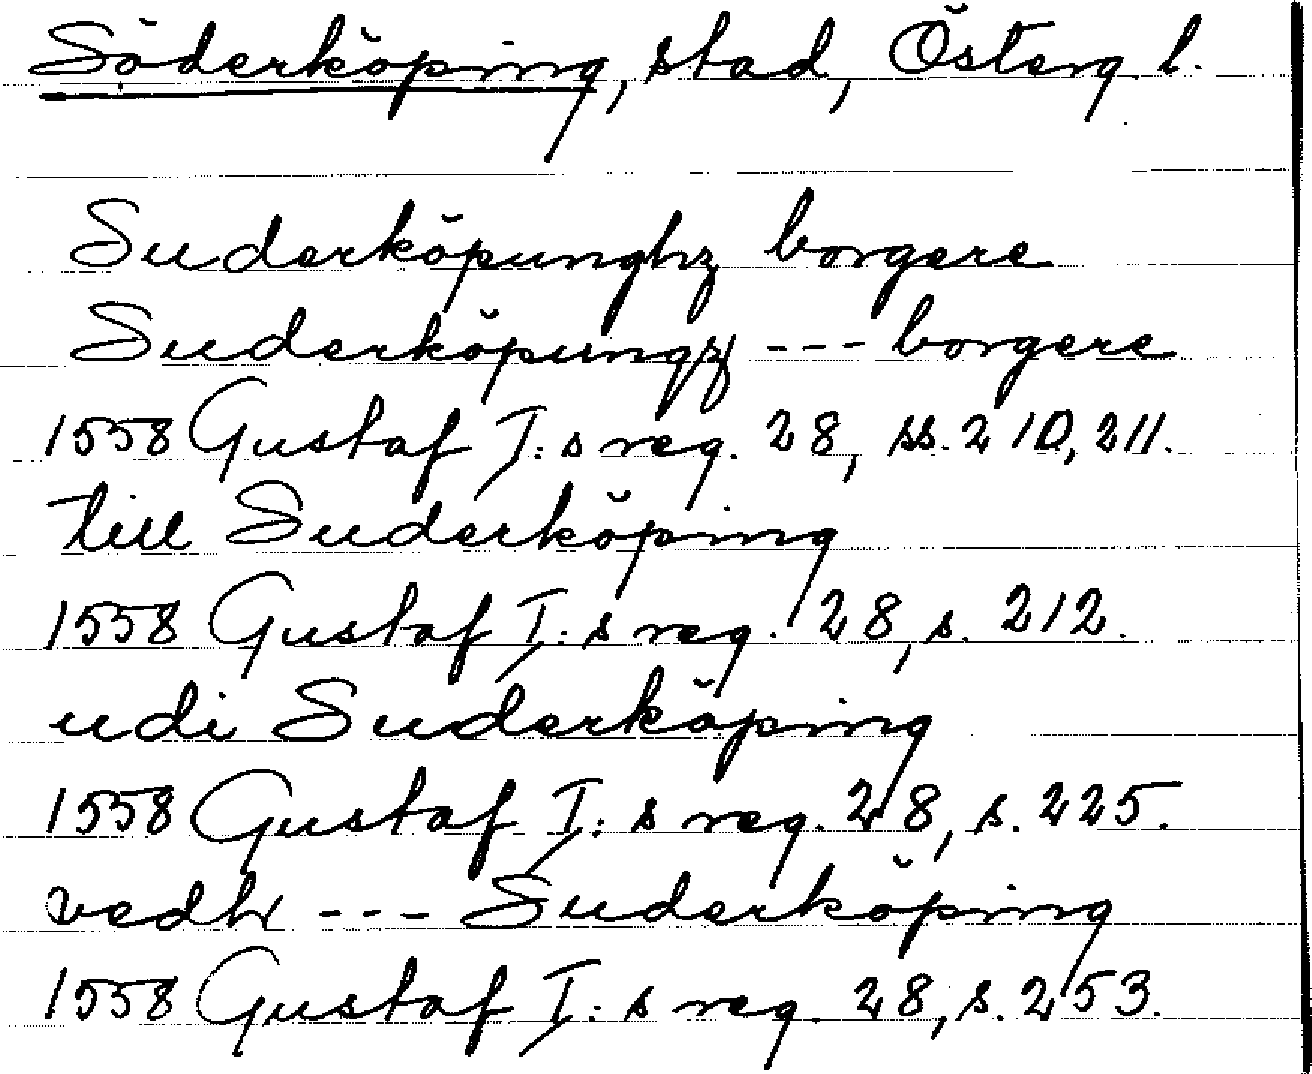 Söderköping, stad, Österg. l.
Suderköpunghz borgere
Suderköpungz --- borgere
1558 Gustaf I:s reg. 28, ss. 210, 211.
till Suderköping
1558 Gustaf I:s reg. 28, s. 212.
udi Suderköping
1558 Gustaf I:s reg. 28, s. 225.
vedh --- Suderköping
1558 Gustaf I:s reg. 28, s. 253.